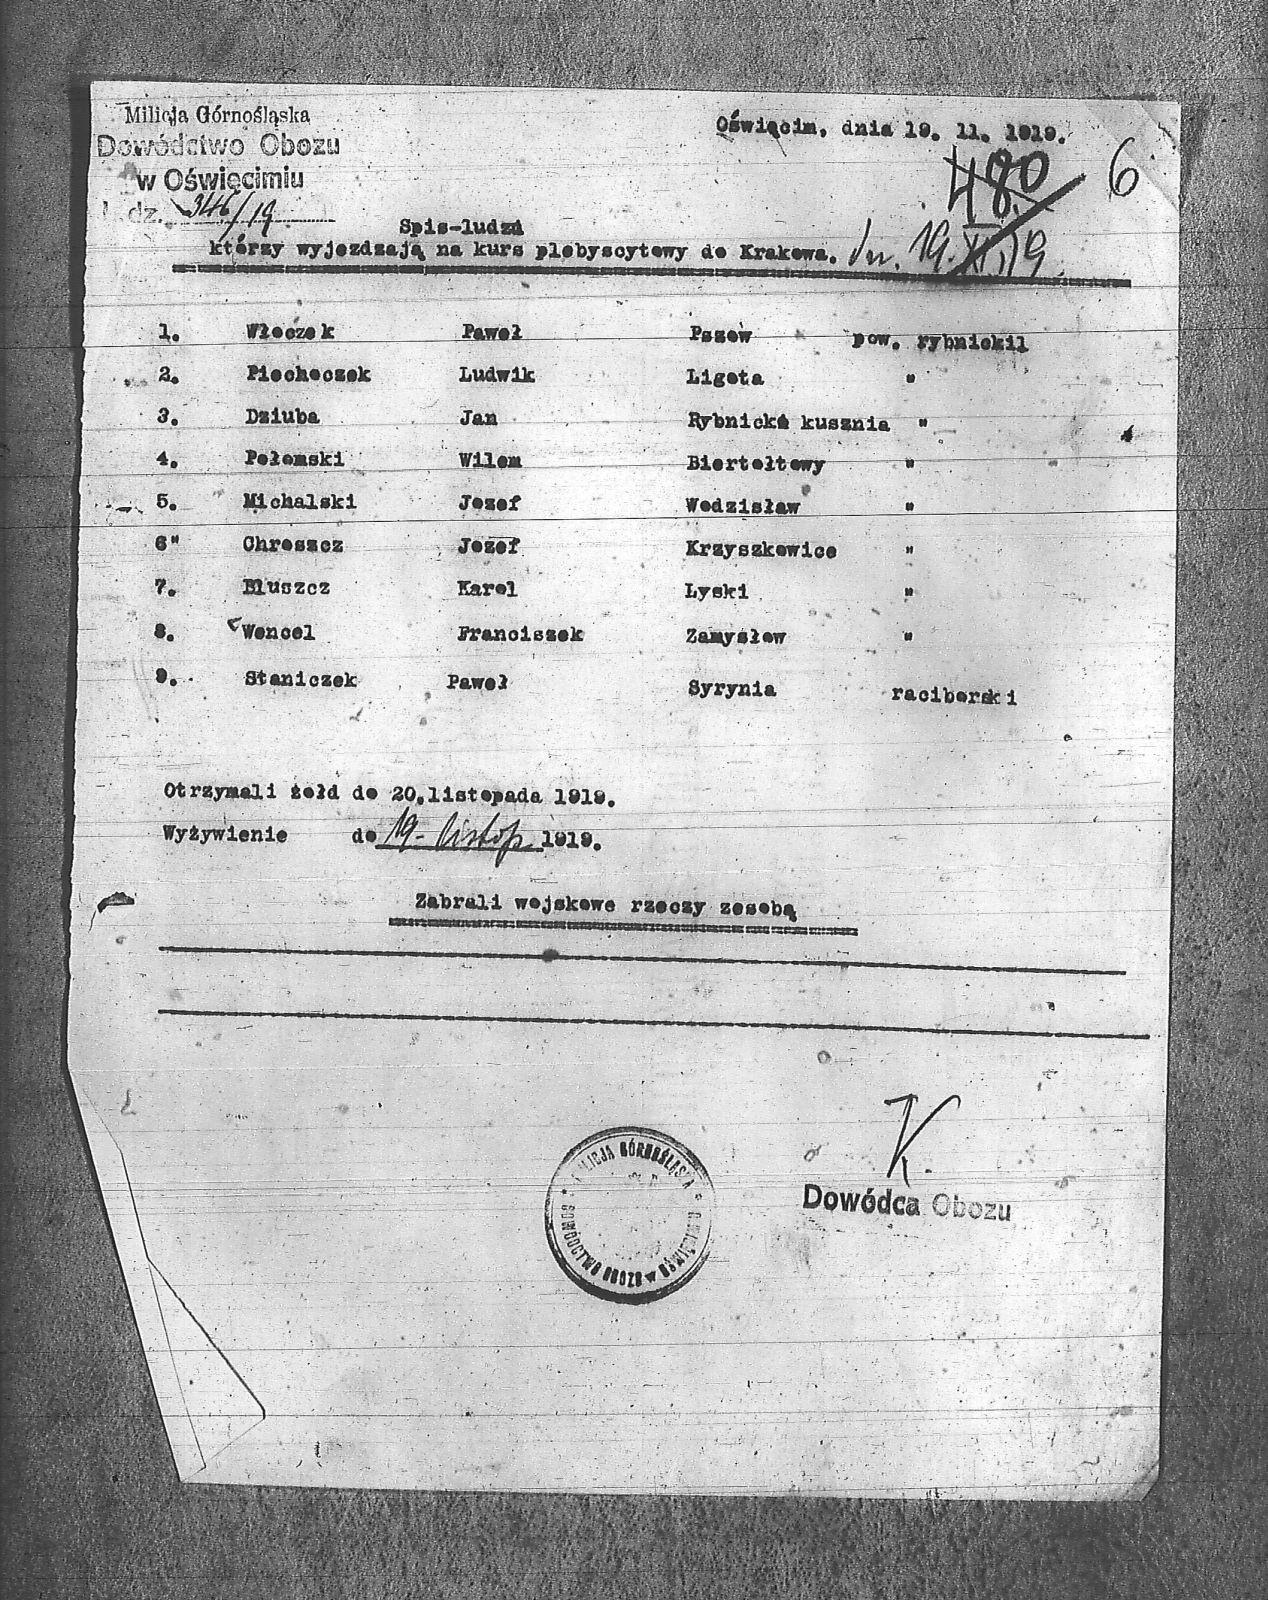 Milicja Górnośląska
Dowództwo Obozu
w Oświęcimiu
l. dz. 346/19
Oświęcim, dnia 19. 11. 1919.
480 6
Spis-ludzi
którzy wyjezdzają na kurs plebyscytowy do Krakowa. dn. 19. XI. 19
1. Włoczek Paweł Pszow pow. rybnickil
2. Piechoczek Ludwik Ligota "
3. Dziuba Jan Rybnicka kusznia "
4. Połomski Wilem Biertołtowy "
5. Michalski Jozef Wodzisław "
6" Chroszcz Jozef Krzyszkowice "
7. Bluszcz Karol Lyski "
8. Wencel Franciszek Zamysłow "
9. Staniczek Paweł Syrynia raciborski
Otrzymali żołd do 20.listopada 1919.
Wyżywienie do 19- listop. 1919.
Zabrali wojskowe rzeczy zesobą
MILICJA GÓRNOŚLĄSKA
DOWÓDCTWO OBOZU w OŚWIĘCIMIU
K.
Dowódca Obozu